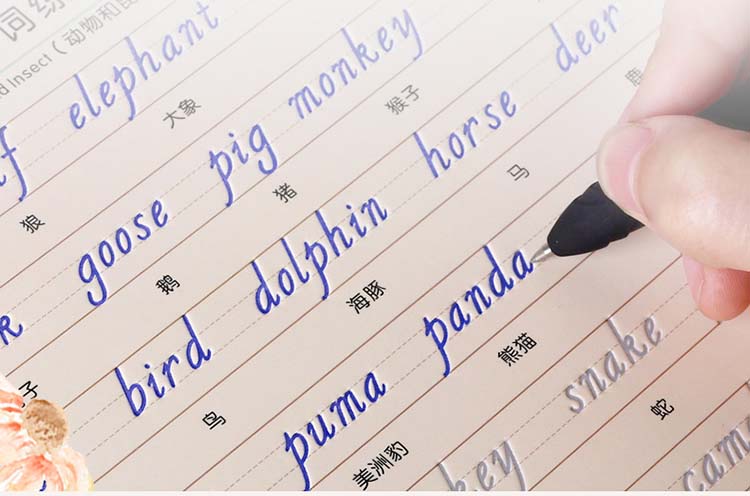 Insect（动物和昆
f elephant
狼 大象
goose pig monkey
鹅 猪 猴子
bird dolphin horse deer
子 鸟 海豚 马 鹿
puma panda
美洲豹 熊猫
key snake
蛇
came